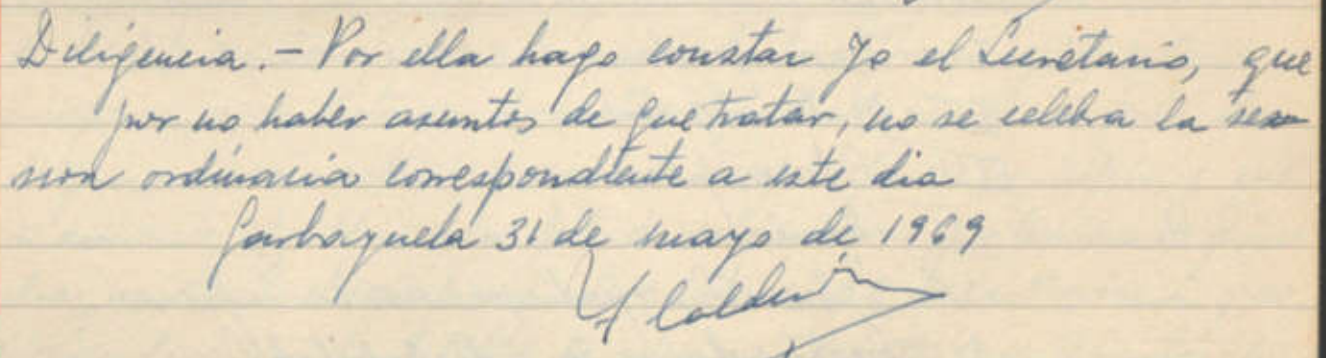 Diligencia.- Por ella hago constar Yo el Secretario, que
por no haber asuntos de que tratar, no se celebra la se
sion ordinaria correspondiente a este dia
Garbayuela 31 de mayo de 1969
Calderón